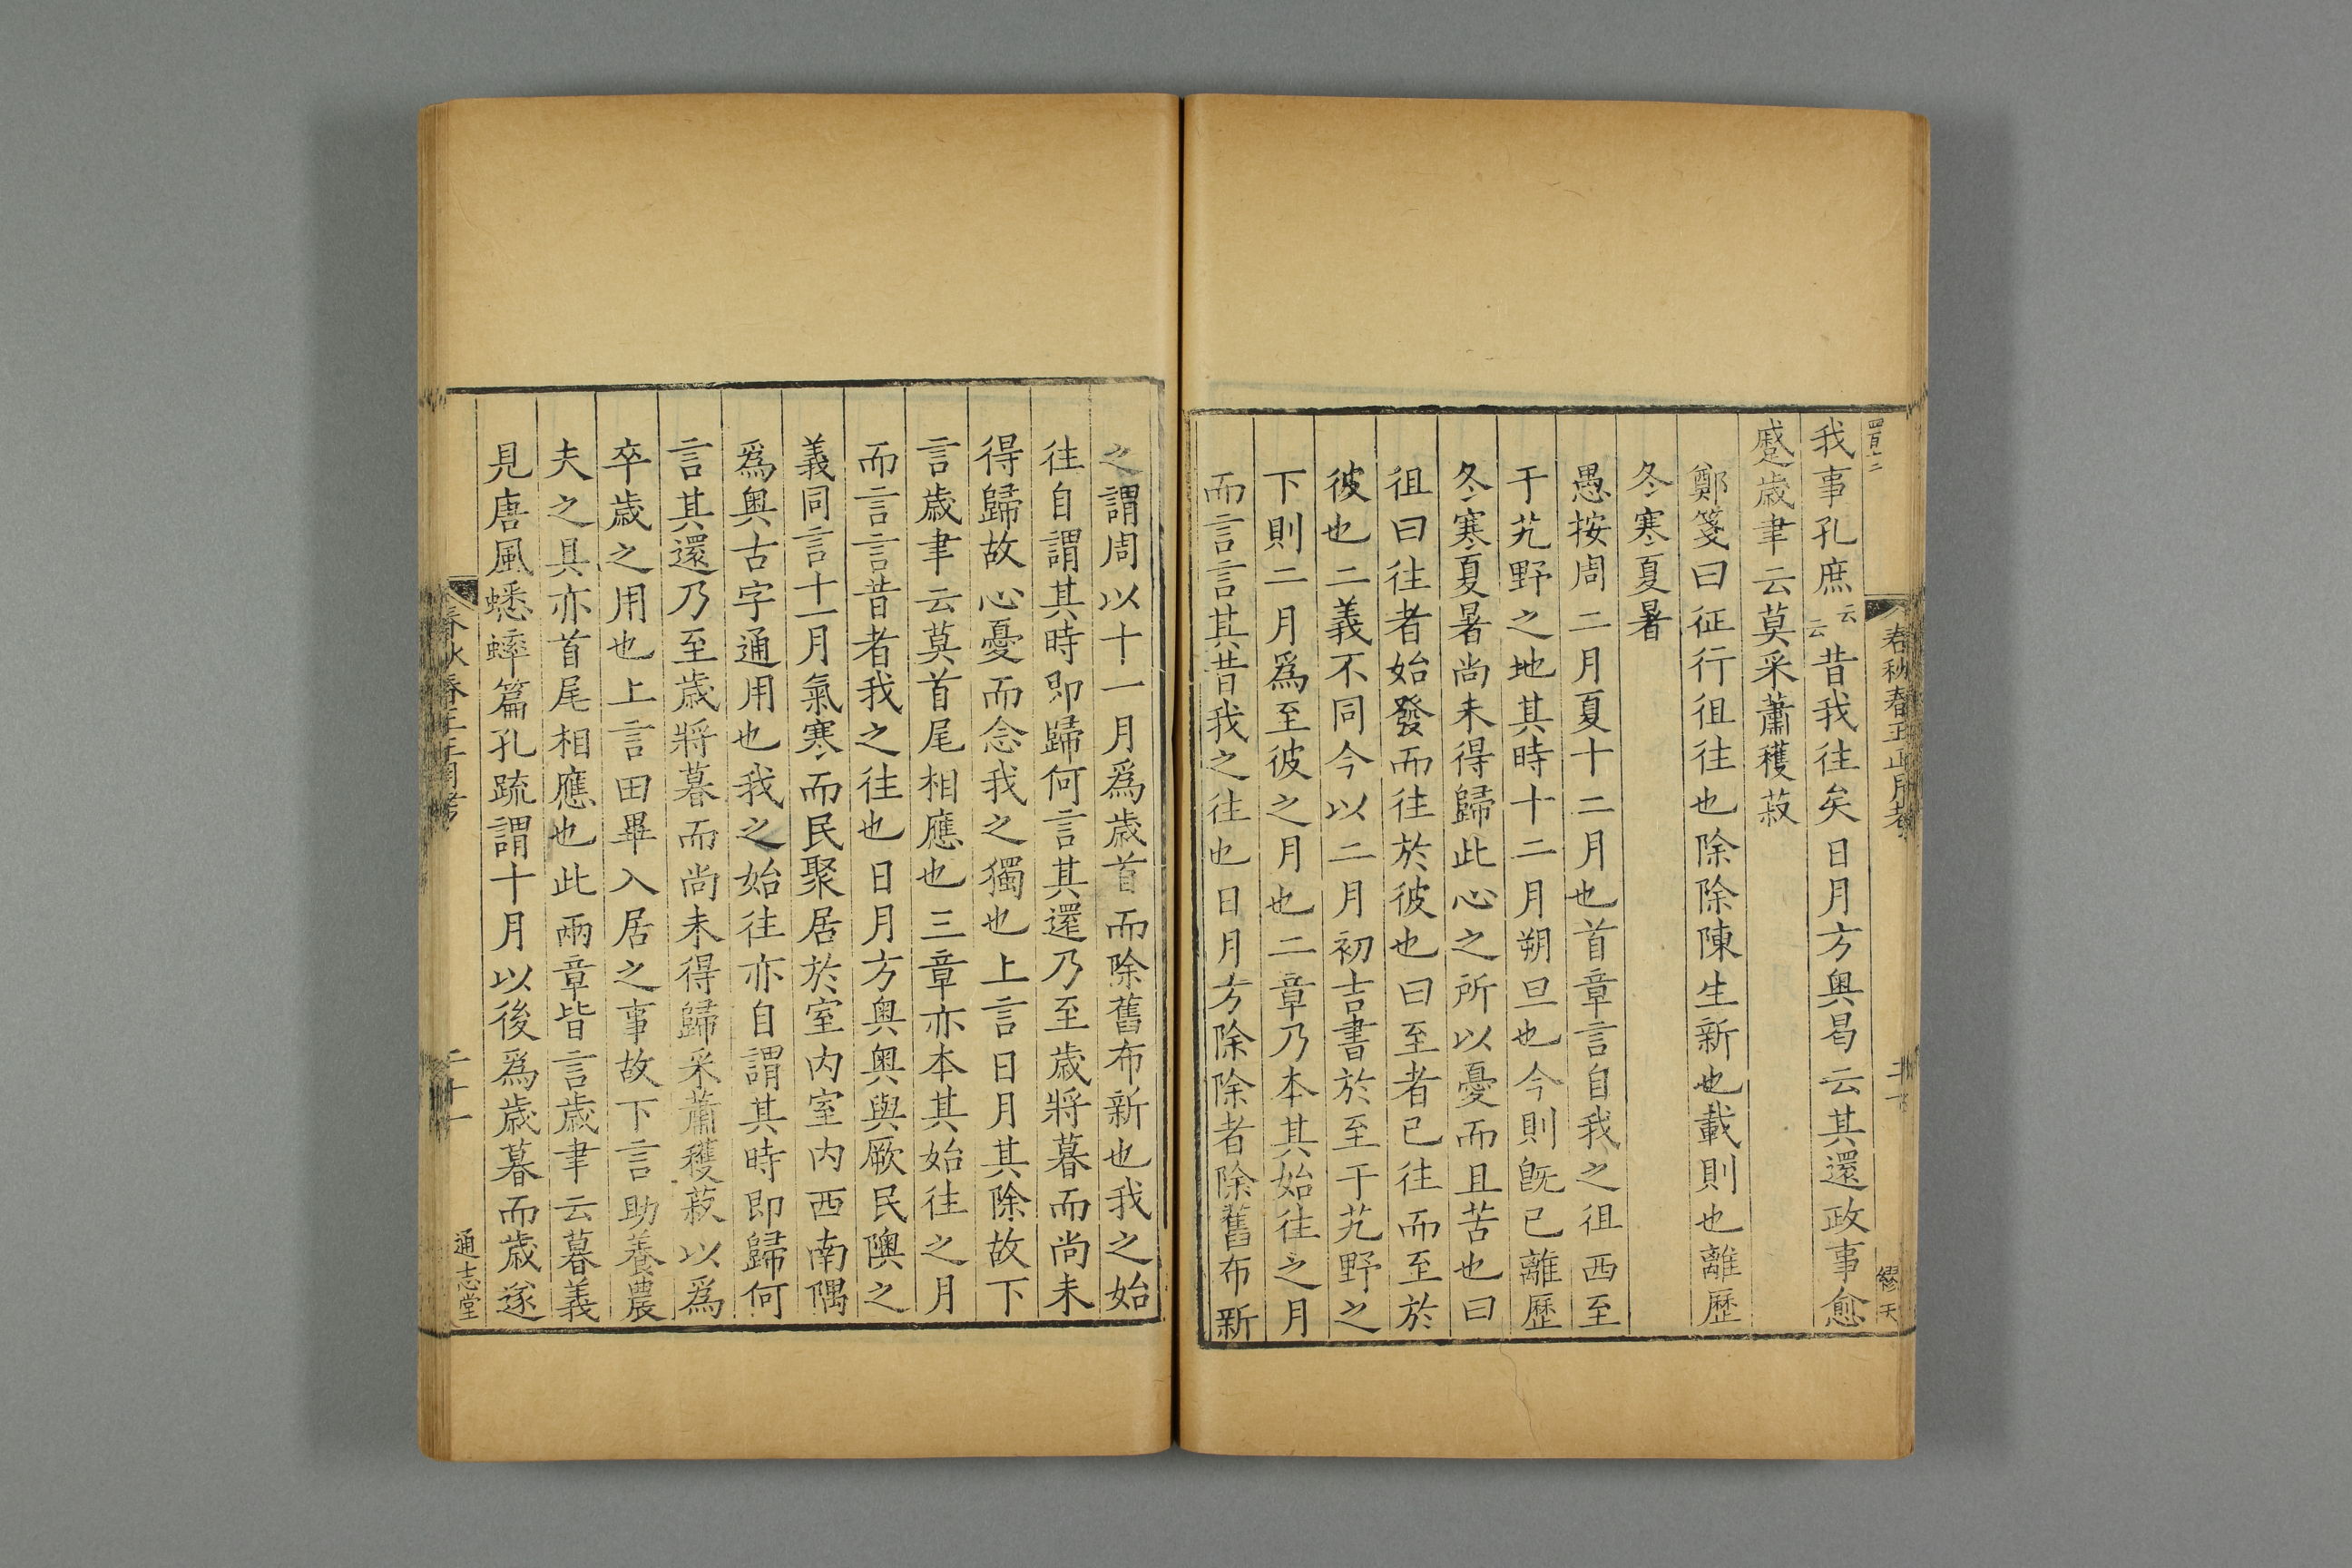 四百十二
春秋春王正月考
二十
繆天
我事孔庶云云昔我往矣日月方奥曷云其還政事愈
蹙歲聿云莫采蕭穫菽
鄭箋曰征行徂往也除除陳生新也載則也離歷
冬寒夏暑
愚按周二月夏十二月也首章言自我之徂西至
于艽野之地其時十二月朔旦也今則既已離歷
冬寒夏暑尚未得歸此心之所以憂而且苦也曰
徂曰往者始發而往於彼也曰至者已往而至於
彼也二義不同今以二月初吉書於至于艽野之
下則二月爲至彼之月也二章乃本其始往之月
而言言其昔我之往也日月方除除者除舊布新
之謂周以十一月爲歲首而除舊布新也我之始
往自謂其時即歸何言其還乃至歲將暮而尚未
得歸故心憂而念我之獨也上言日月其除故下
言歲聿云莫首尾相應也三章亦本其始往之月
而言言昔者我之往也日月方奥奥與厥民隩之
義同言十一月氣寒而民聚居於室内室内西南隅
爲奥古字通用也我之始往亦自謂其時即歸何
言其還乃至歲將暮而尚未得歸采蕭穫菽以爲
卒歲之用也上言田畢入居之事故下言助養農
夫之具亦首尾相應也此兩章皆言歲聿云暮義
見唐風蟋蟀篇孔疏謂十月以後爲歲暮而歲遂
春秋春王正月考
二十一
通志堂